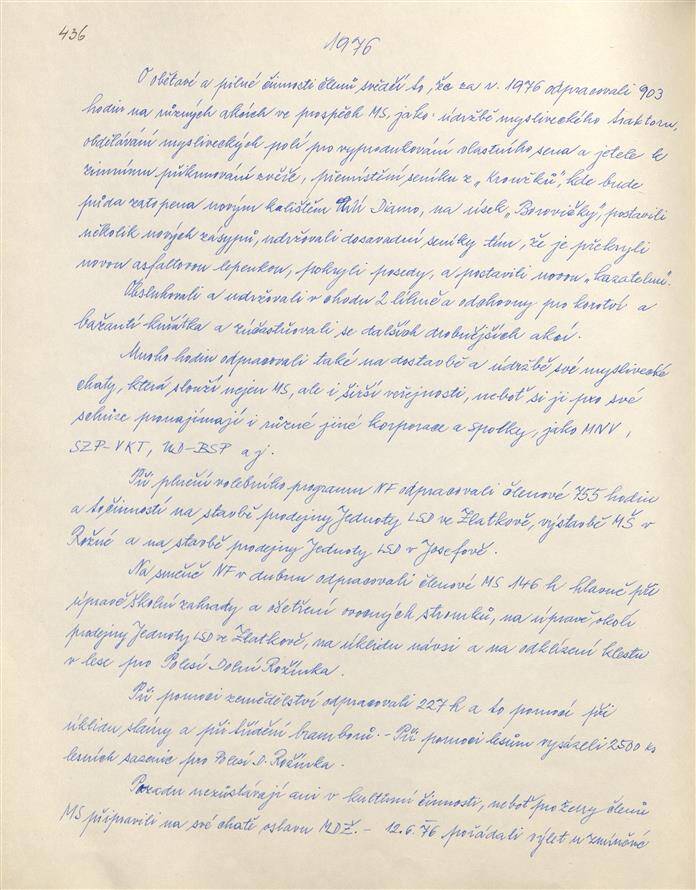 436
1976
O obětavé a pilné činnosti členů svědčí to, že za r. 1976 odpracovali 903
hodin na různých akcích ve prospěch MS, jako: údržbě mysliveckého traktoru,
obdělávání mysliveckých polí pro vyprodukování vlastního sena a jetele k
zimnímu přikrmování zvěře, přemístění seníku z „Krowčků", kde bude
půda zatopena novým kalištěm Diamo, na úsek „Borovičky", postavili
několik nových zásypů, udržovali dosavadní seníky tím, že je překryli
novou asfaltovou lepenkou, pokryli posedy, a postavili novou „kazatelnu".
Obsluhovali a udržovali v chodu 2 líhně a odchovny pro koroptví a
bažantí kuřátka a zúčastňovali se dalších drobnějších akcí.
Mnoho hodin odpracovali také na dostavbě a údržbě své myslivecké
chaty, která slouží nejen MS, ale i širší veřejnosti, neboť si ji pro své
schůze pronajímají i různé jiné korporace a spolky, jako MNV,
SZP-VKT, UD-BSP a j.
Při plnění volebního programu NF odpracovali členové 755 hodin
a to činností na stavbě prodejny Jednoty LSD ve Zlatkově, výstavbě MŠ v
Rožné a na stavbě prodejny Jednoty LSD v Josefově.
Na směně NF v dubnu odpracovali členové MS 146 h hlavně při
úpravě školní zahrady a ošetření ovocných stromků, na úpravě okolí
prodejny Jednoty LSD ve Zlatkově, na úklidu návsi a na odklízení klestu
v lese pro Polesí Dolní Rožínka.
Při pomoci zemědělství odpracovali 227 h a to pomocí při
úklidu slámy a při třídění bramborů. - Při pomoci lesům vysázeli 2500 ks
lesních sazenic pro Polesí D. Rožínka.
Pozadu nezůstávají ani v kulturní činnosti, neboť pro ženy členů
MS připravili na své chatě oslavu MDŽ. - 12. 6. 76 pořádali výlet u zmíněné